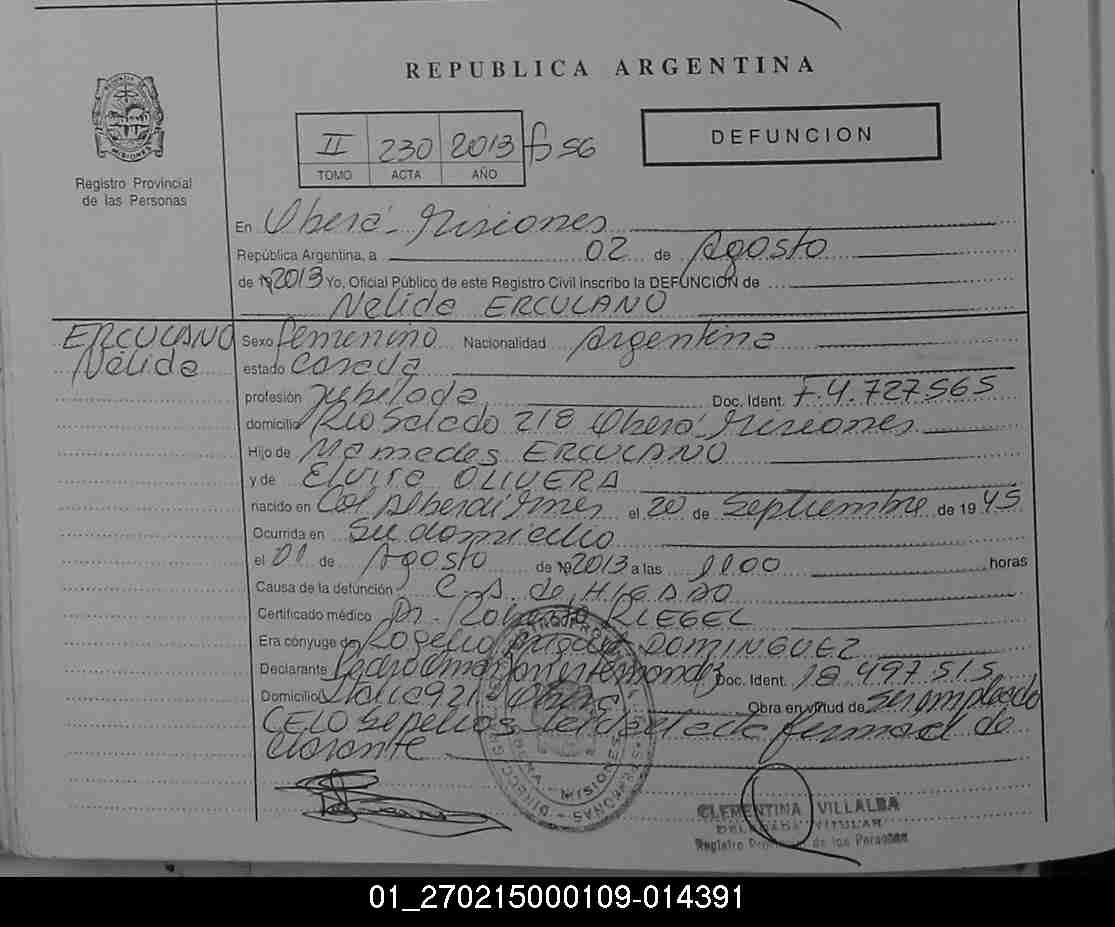 REPUBLICA ARGENTINA
MISIONES
Registro Provincial
de las Personas
II 230 2013 fº 56
TOMO ACTA AÑO
DEFUNCION
En Oberá - Misiones
República Argentina, a 02 de Agosto
de 2013 Yo, Oficial Público de este Registro Civil inscribo la DEFUNCIÓN de
Nelida ERCULANO
ERCULANO
Nélida
Sexo femenino Nacionalidad Argentina
estado Casada
profesión Jubilada Doc. Ident. F. 4.727565
domicilio Rio Salado 218 Oberá Misiones
Hijo de Mamedes ERCULANO
y de Elvira OLIVERA
nacido en Col Alberdi Mnes el 20 de Septiembre de 1945
Ocurrida en Su domicilio
el 01 de Agosto de 2013 a las 1100 horas
Causa de la defunción C. A. de HIGADO
Certificado médico Dr. Roberto RIEGEL
Era cónyuge de Rogelio DOMINGUEZ
Declarante Pedro Hernandez Doc. Ident. 18.497.515
Domicilio Italia 921 Oberá Obra en virtud de Ser empleado
CELO Sepelios leida el acta firma el de
clarante
OBERA - MISIONES
CLEMENTINA VILLALBA
DELEGADA TITULAR
Registro Provincial de las Personas
01_270215000109-014391